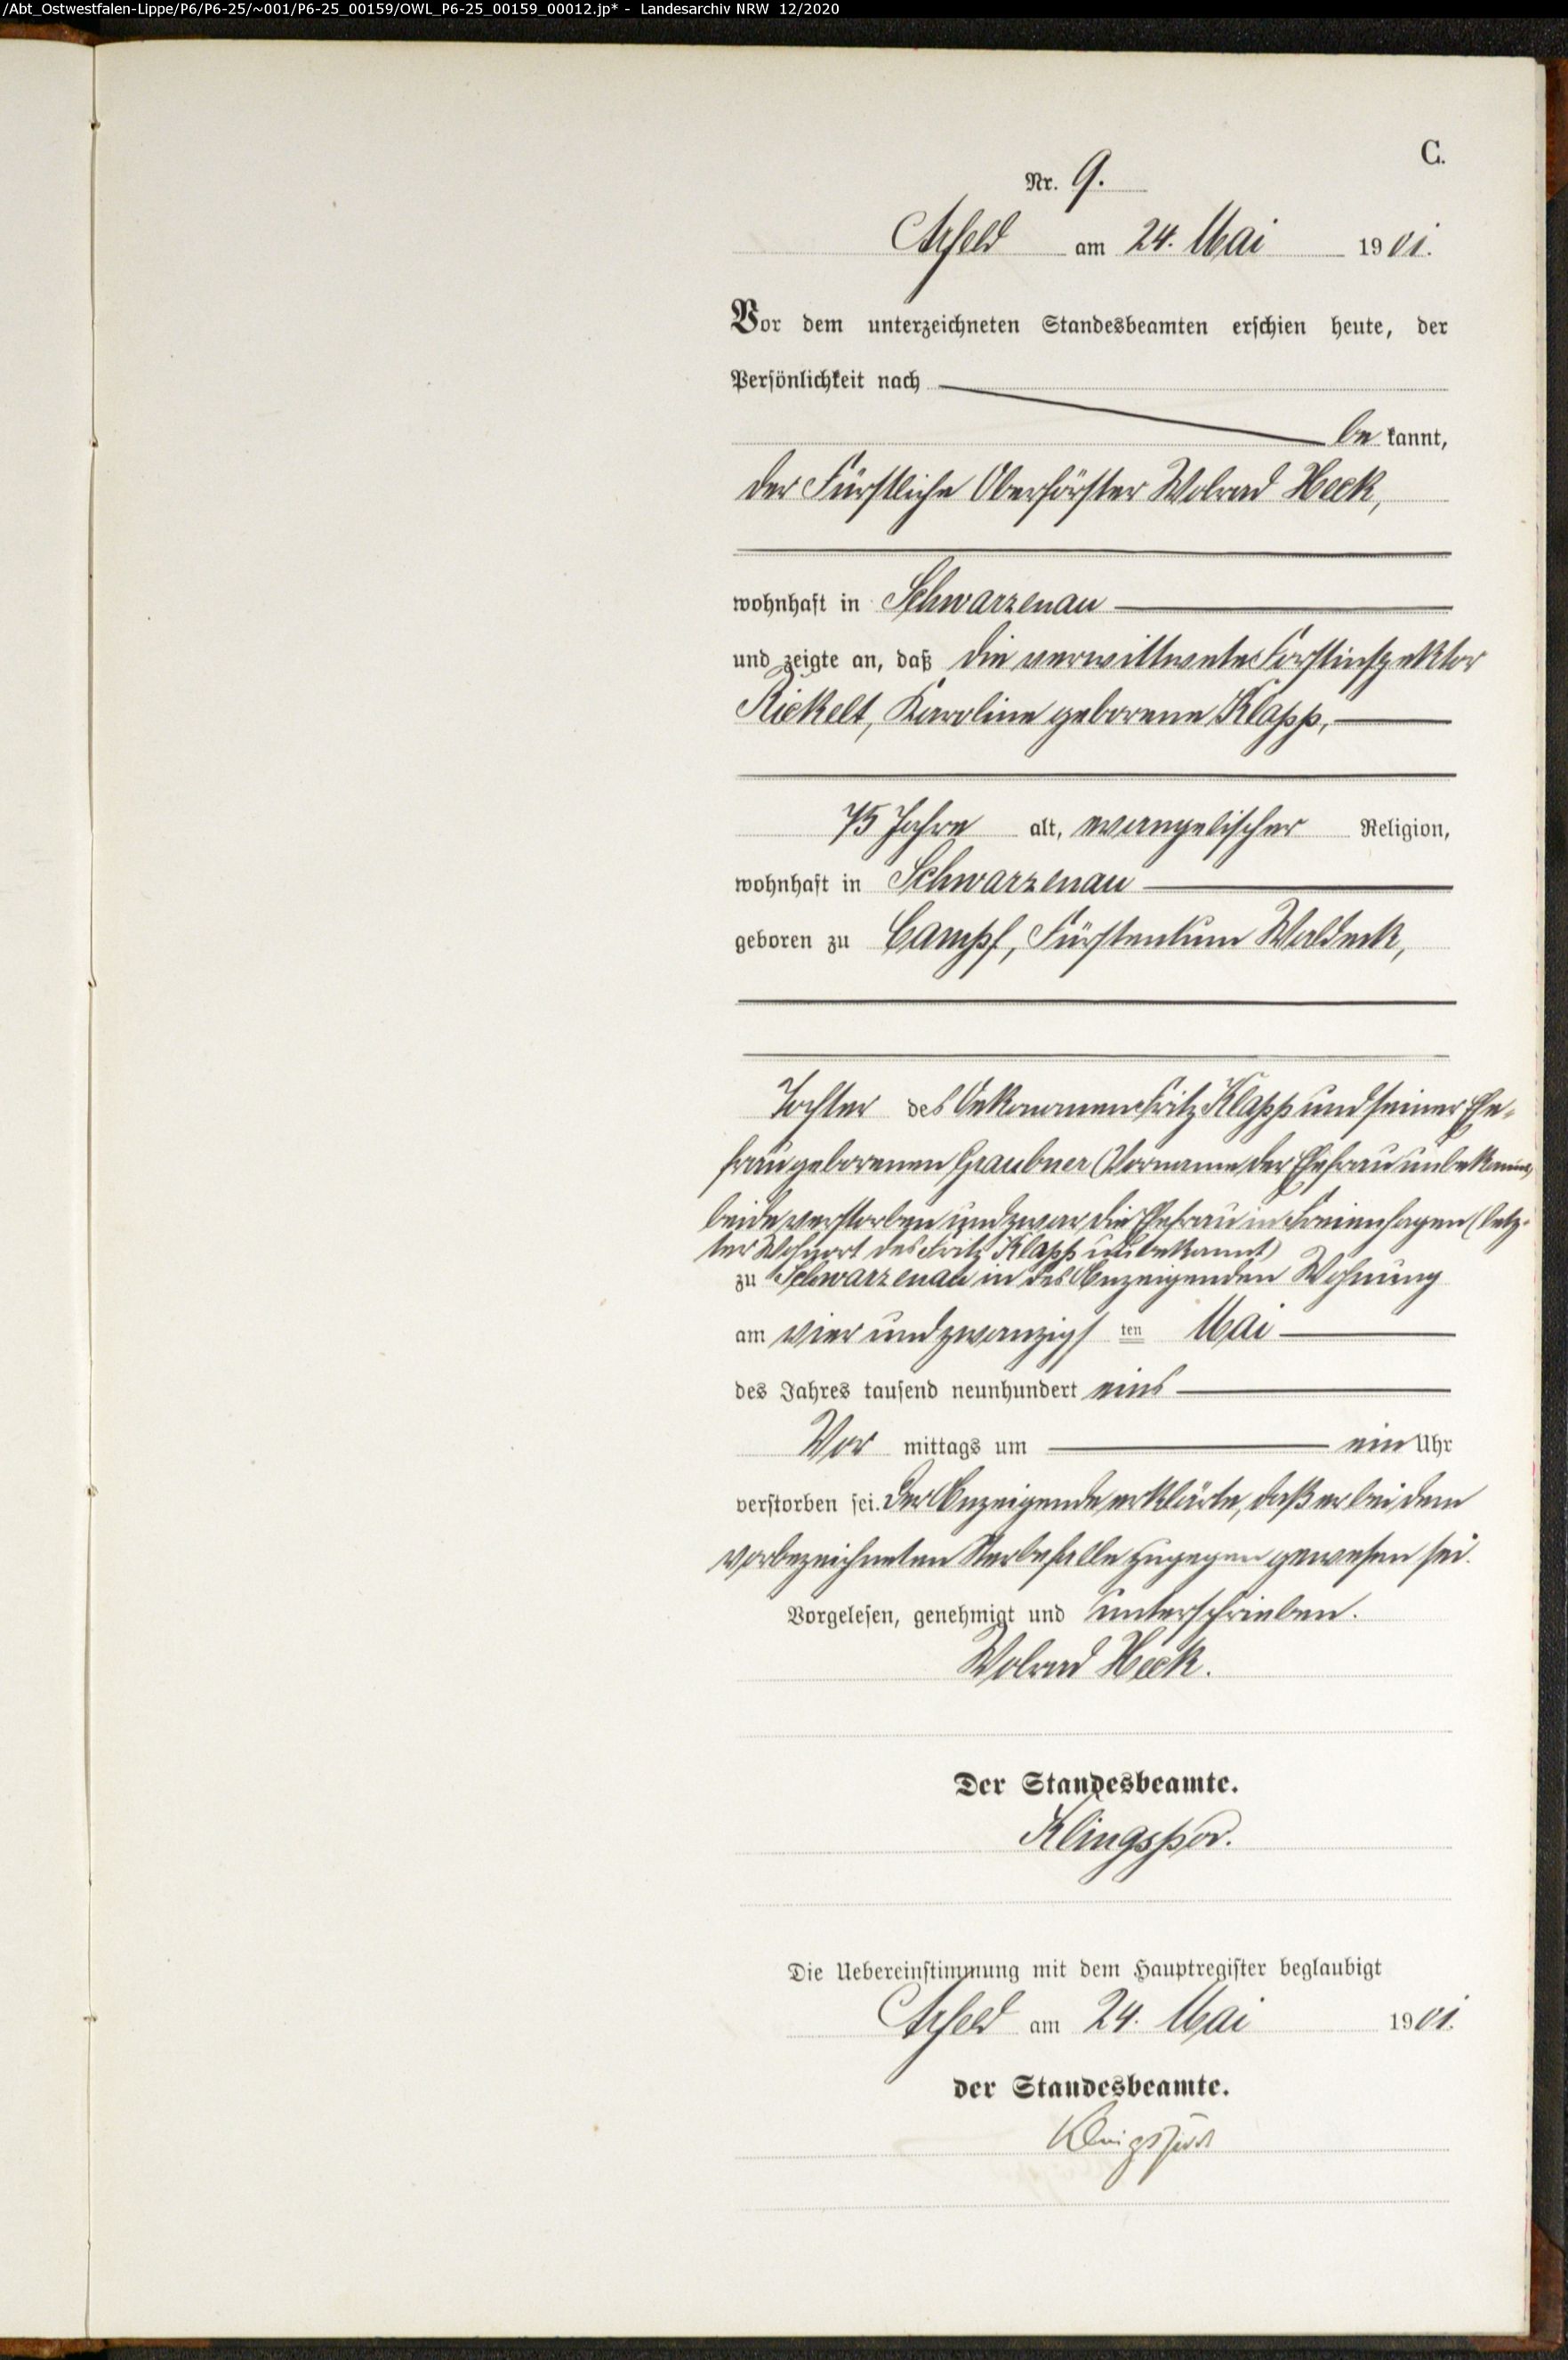 /Abt_Ostwestfalen-Lippe/P6/P6-25/~001/P6-25_00159/OWL_P6-25_00159_00012.jp* - Landesarchiv NRW 12/2020
C.
Nr. 9.
Arfeld am 24. Mai 1901.
Vor dem unterzeichneten Standesbeamten erschien heute, der
Persönlichkeit nach
be kannt,
der Fürstliche Oberförster Wolrad Heck,
wohnhaft in Schwarzenau
und zeigte an, daß die verwittwete Forstinspektor
Rickelt, Karoline geborene Klapp,
75 Jahre alt, evangelischer Religion,
wohnhaft in Schwarzenau
geboren zu Campf, Fürstentum Waldeck,
Tochter des Oekonomen Fritz Klapp und seiner Ehe-
frau geborenen Graubner (Vorname der Ehefrau unbekannt)
beide verstorben und zwar die Ehefrau in Freienhagen (letz-
ter Wohnort des Fritz Klapp unbekannt)
zu Schwarzenau in des Anzeigenden Wohnung
am vier und zwanzigs ten Mai
des Jahres tausend neunhundert eins
Vor mittags um ein Uhr
verstorben sei. Der Anzeigende erklärte, daß er bei dem
vorbezeichneten Sterbefalle zugegen gewesen sei.
Vorgelesen, genehmigt und unterschrieben.
Wolrad Heck.
Der Standesbeamte.
Klingspor.
Die Uebereinstimmung mit dem Hauptregister beglaubigt
Arfeld am 24. Mai 1901.
der Standesbeamte.
Klingspor